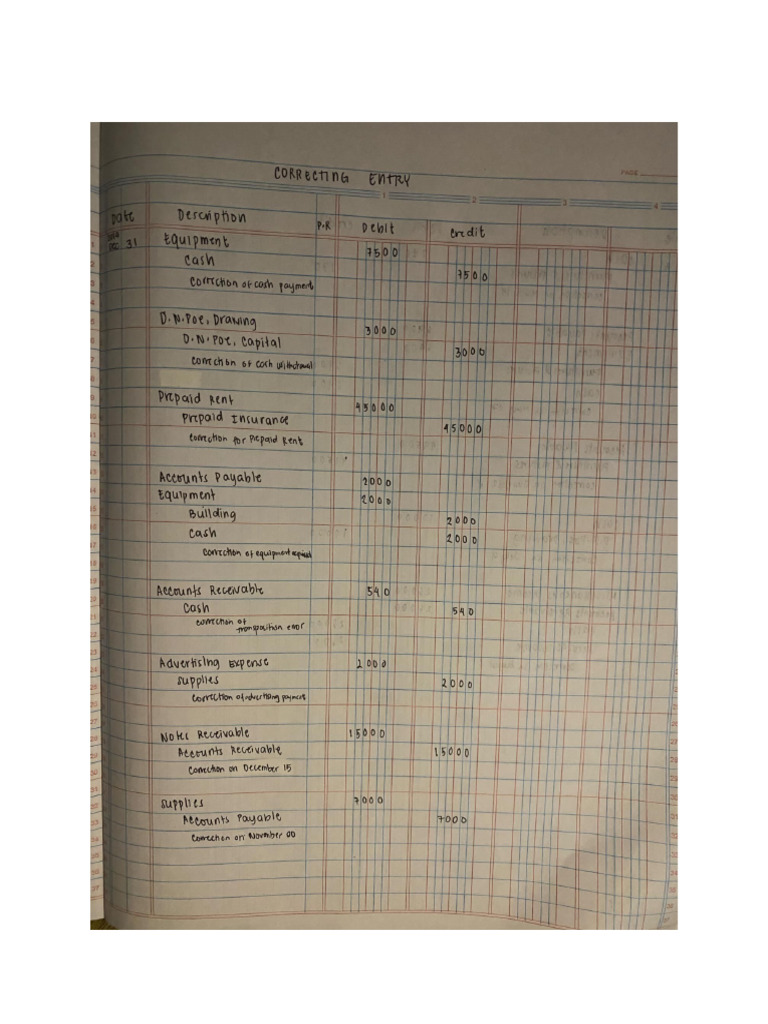 CORRECTING ENTRY
PAGE
1 2 3 4
Date Description P.R Debit Credit
Dec 31 Equipment 7500
Cash 7500
Correction of cash payment
D.N.Poe, Drawing 3000
D.N.Poe, Capital 3000
Correction of cash withdrawal
Prepaid Rent 45000
Prepaid Insurance 45000
Correction for Prepaid Rent
Accounts Payable 2000
Equipment 2000
Building 2000
Cash 2000
Correction of equipment
Accounts Receivable 540
Cash 540
Correction of
transposition error
Advertising Expense 2000
Supplies 2000
Correction of advertising payment
Notes Receivable 15000
Accounts Receivable 15000
Correction on December 15
Supplies 7000
Accounts Payable 7000
Correction on November